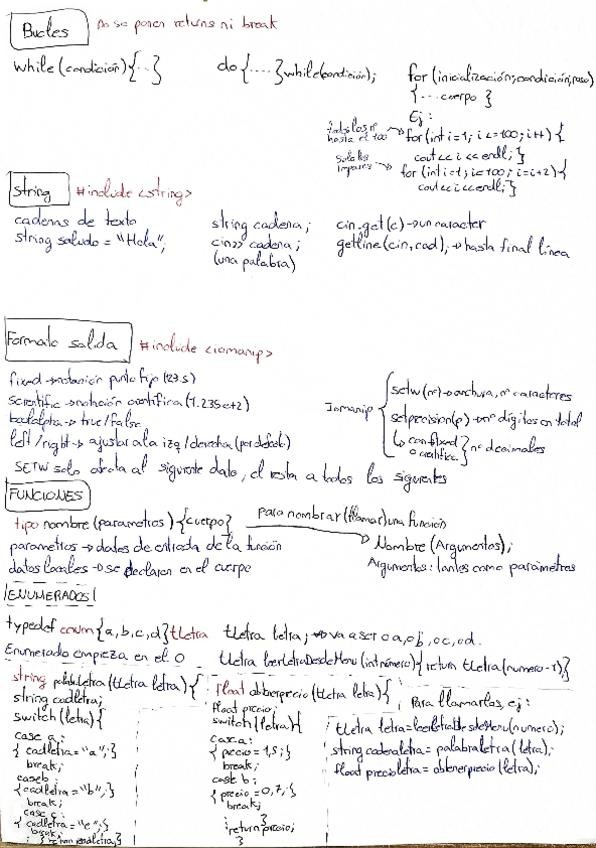 Bucles no se ponen returns ni break
while (condición) {...} do {....} while (condición); for (inicialización; condición; paso)
{ ... cuerpo }
Ej:
todos los nº hasta el 100 → for (int i=1; i<=100; i++) {
cout << i << endl; }
solo los impares → for (int i=1; i<=100; i=i+2) {
cout << i << endl; }
string #include <string>
cadenas de texto string cadena; cin.get(c) → un caracter
string saludo = "Hola"; cin >> cadena; getline(cin, cad); → hasta final línea
(una palabra)
Formato salida #include <iomanip>
fixed → notación punto fijo (23.5)
scientific → notación científica (1.235e+2)
boolalpha → true/false
left/right → ajustar a la izq/derecha (por defecto)
SETW solo afecta al siguiente dato, el resto a todos los siguientes
Iomanip { setw(nº) → anchura, nº caracteres
setprecision(p) → nº dígitos en total
↳ con fixed o scientific } nº decimales
FUNCIONES
tipo nombre (parametros) {cuerpo} para nombrar (llamar) una función
parametros → datos de entrada de la función Nombre (Argumentos);
datos locales → se declaran en el cuerpo Argumentos: tantes como parámetros
ENUMERADOS
typedef enum {a, b, c, d} tLetra tLetra letra; → va a ser o a, o b, o c, o d.
Enumerado empieza en el 0 tLetra leerLetraDesdeMenu (int número) { return tLetra (numero-1);}
string palabraletra (tLetra letra) {
string cadletra;
switch (letra) {
case a:
{ cadletra = "a"; }
break;
case b:
{ cadletra = "b"; }
break;
case c:
{ cadletra = "c"; }
break;
} return cadletra; }
float obtenerprecio (tLetra letra) {
float precio;
switch (letra) {
case a:
{ precio = 1,5; }
break;
case b:
{ precio = 0,7; }
break;
}
return precio;
}
Para llamarlos, ej:
tLetra letra = leerletraDesdeMenu (numero);
string cadenaletra = palabraletra (letra);
float precioletra = obtenerprecio (letra);